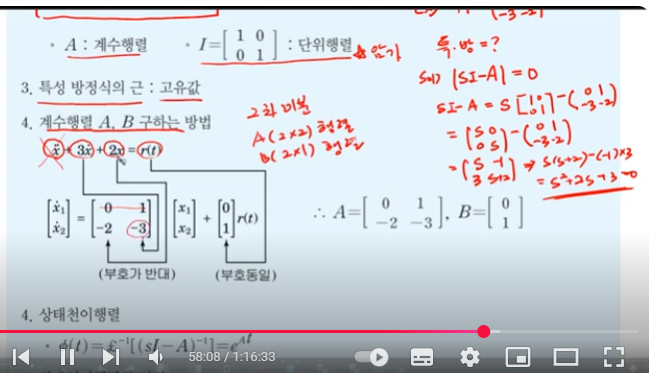 (-3 -2)
· A : 계수행렬 · I = [1 0 / 0 1] : 단위행렬 ☆암기
특·방 = ?
3. 특성 방정식의 근 : 고유값
sol) |sI-A| = 0
sI-A = S[1 0 / 0 1] - (0 1 / -3 -2)
= (S 0 / 0 S) - (0 1 / -3 -2)
= (S -1 / 3 S+2) ⇒ S(S+2)-(-1)×3
= S²+2S+3=0
4. 계수행렬 A, B 구하는 방법
2차 미분
A(2×2) 행렬
B(2×1) 행렬
ẍ + 3ẋ + 2x = r(t)
[ẋ₁ / ẋ₂] = [0 1 / -2 -3] [x₁ / x₂] + [0 / 1] r(t)
∴ A = [0 1 / -2 -3], B = [0 / 1]
(부호가 반대) (부호동일)
4. 상태천이행렬
· ϕ(t) = £⁻¹[(sI-A)⁻¹] = e^At
58:08 / 1:16:33